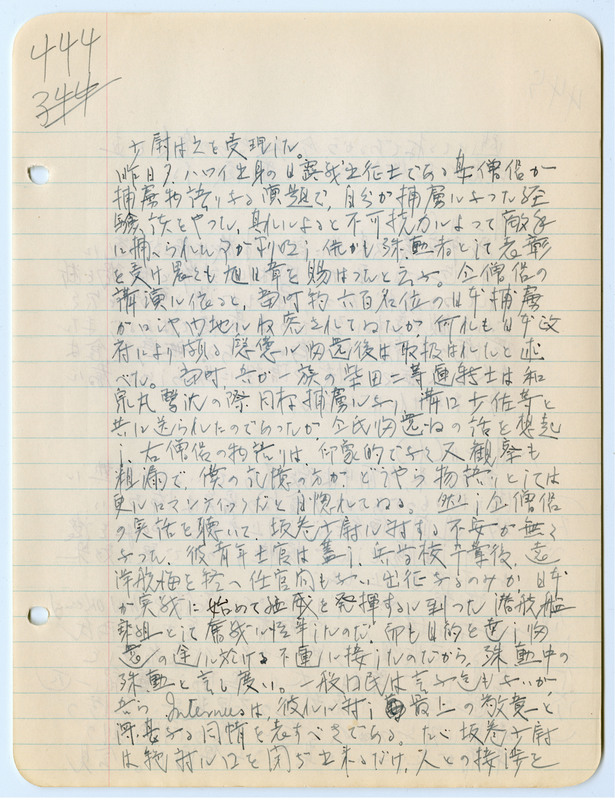 444
344
少尉は之を受理した。
昨日夕、ハワイ出身の日露戦出征士である某僧侶が
捕虜物語りなる演題で、自分が捕虜になった経
験談をやった。其れによると不可抗力によって敵手
に捕へられた事が判明し、併かも殊勲者として表彰
を受け畏くも旭日章を賜はったと云ふ。仝僧侶の
講演に依ると、当時約六百名位の日本捕虜
がロシヤ内地に収容されてゐたが何れも日本政
府により頗る隠忍に帰還後は取扱はれたと述
べた。当時、吾が一族の柴田二等運転士は和
泉丸撃沈の際同様捕虜になり、溝口少佐等と
共に送られたのであったが、仝氏帰還の話を想起
し、右僧侶の物語りは、印象的でなく又観察も
粗漏で、僕の記憶の方が、どうやら物語りとしては
更にロマンティックだと自惚れてゐる。然し仝僧侶
の実話を聴いて、坂巻少尉に対する不安が無く
なった。彼青年士官は蓋し、兵学校卒業後、遠
洋航海を終へ任官間もない出征なるのみか日本
が実戦に始めて威を発揮するに到った潜航艇
乗組として奮戦したのだ。而も目的を達し帰
還の途に於ける不運に接したのだから、殊勲中の
殊勲と言し度い。一般日民は言ふ迄もないが、
Internusは、彼に対し最上の敬意と
深甚なる同情を表すべきである。たゞ坂巻少尉
は絶対に口を閉ぢ出来るだけ、人との接渉を